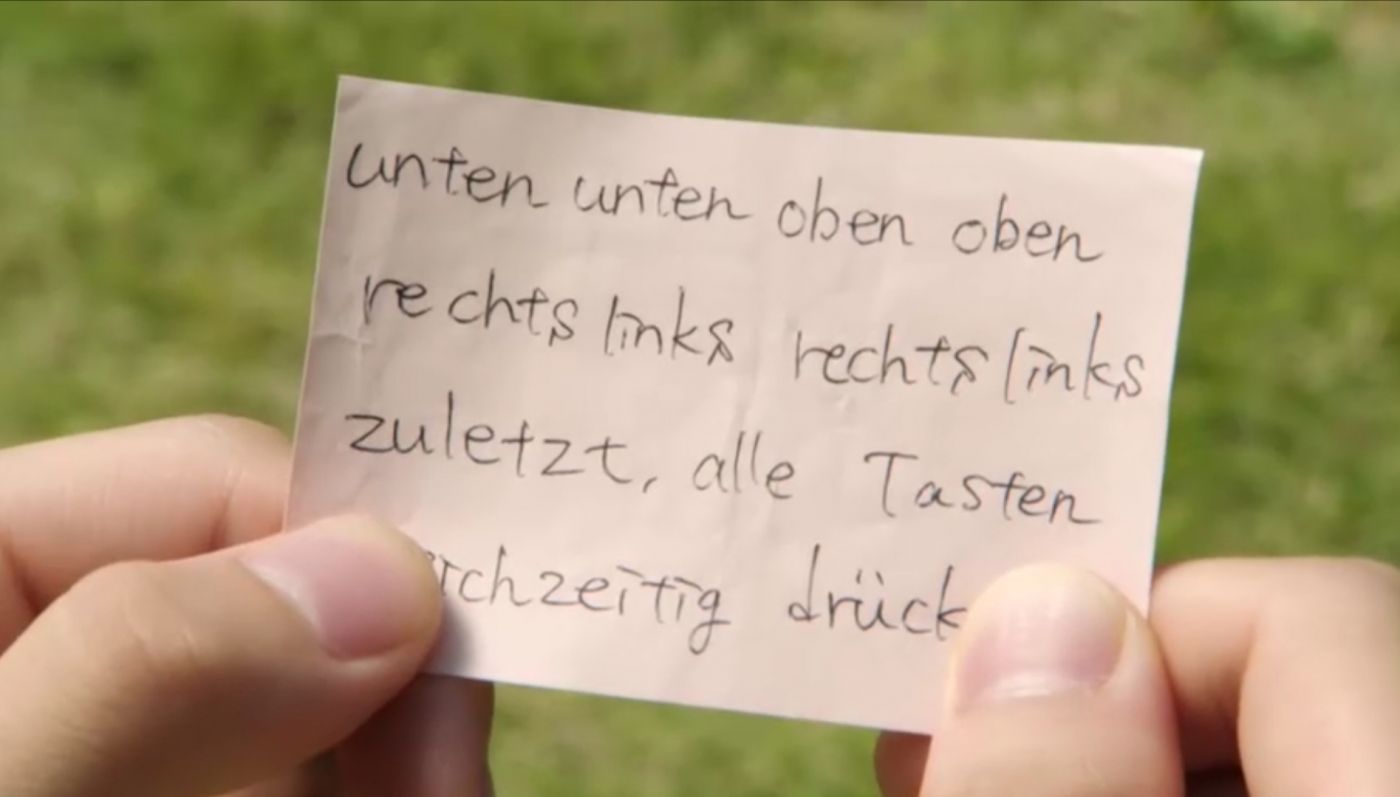 unten unten oben oben
rechts links rechts links
zuletzt, alle Tasten